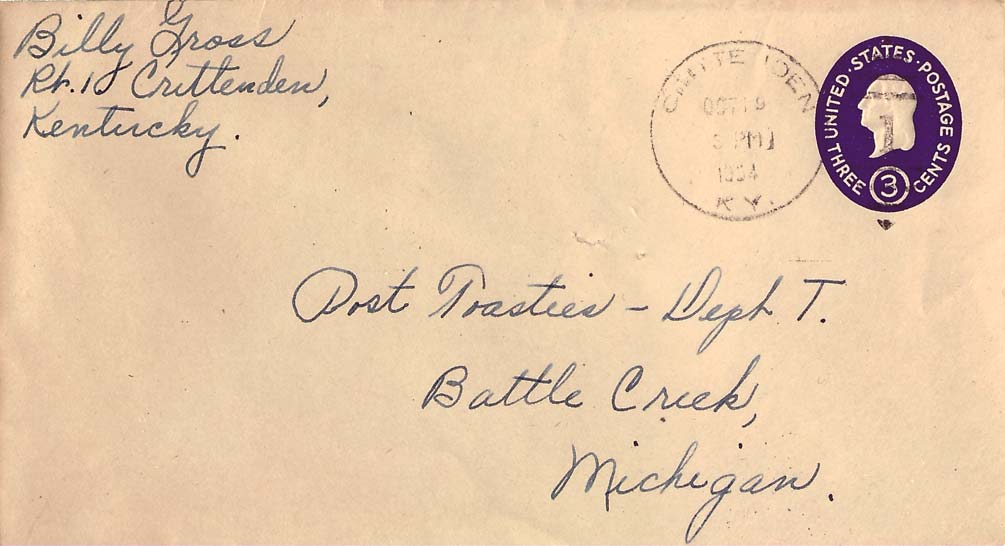 Billy Gross
Rt. 1 Crittenden,
Kentucky.
OCT 19
PM
1954
KY.
UNITED · STATES · POSTAGE
THREE 3 CENTS
Post Toasties - Dept. T.
Battle Creek,
Michigan.